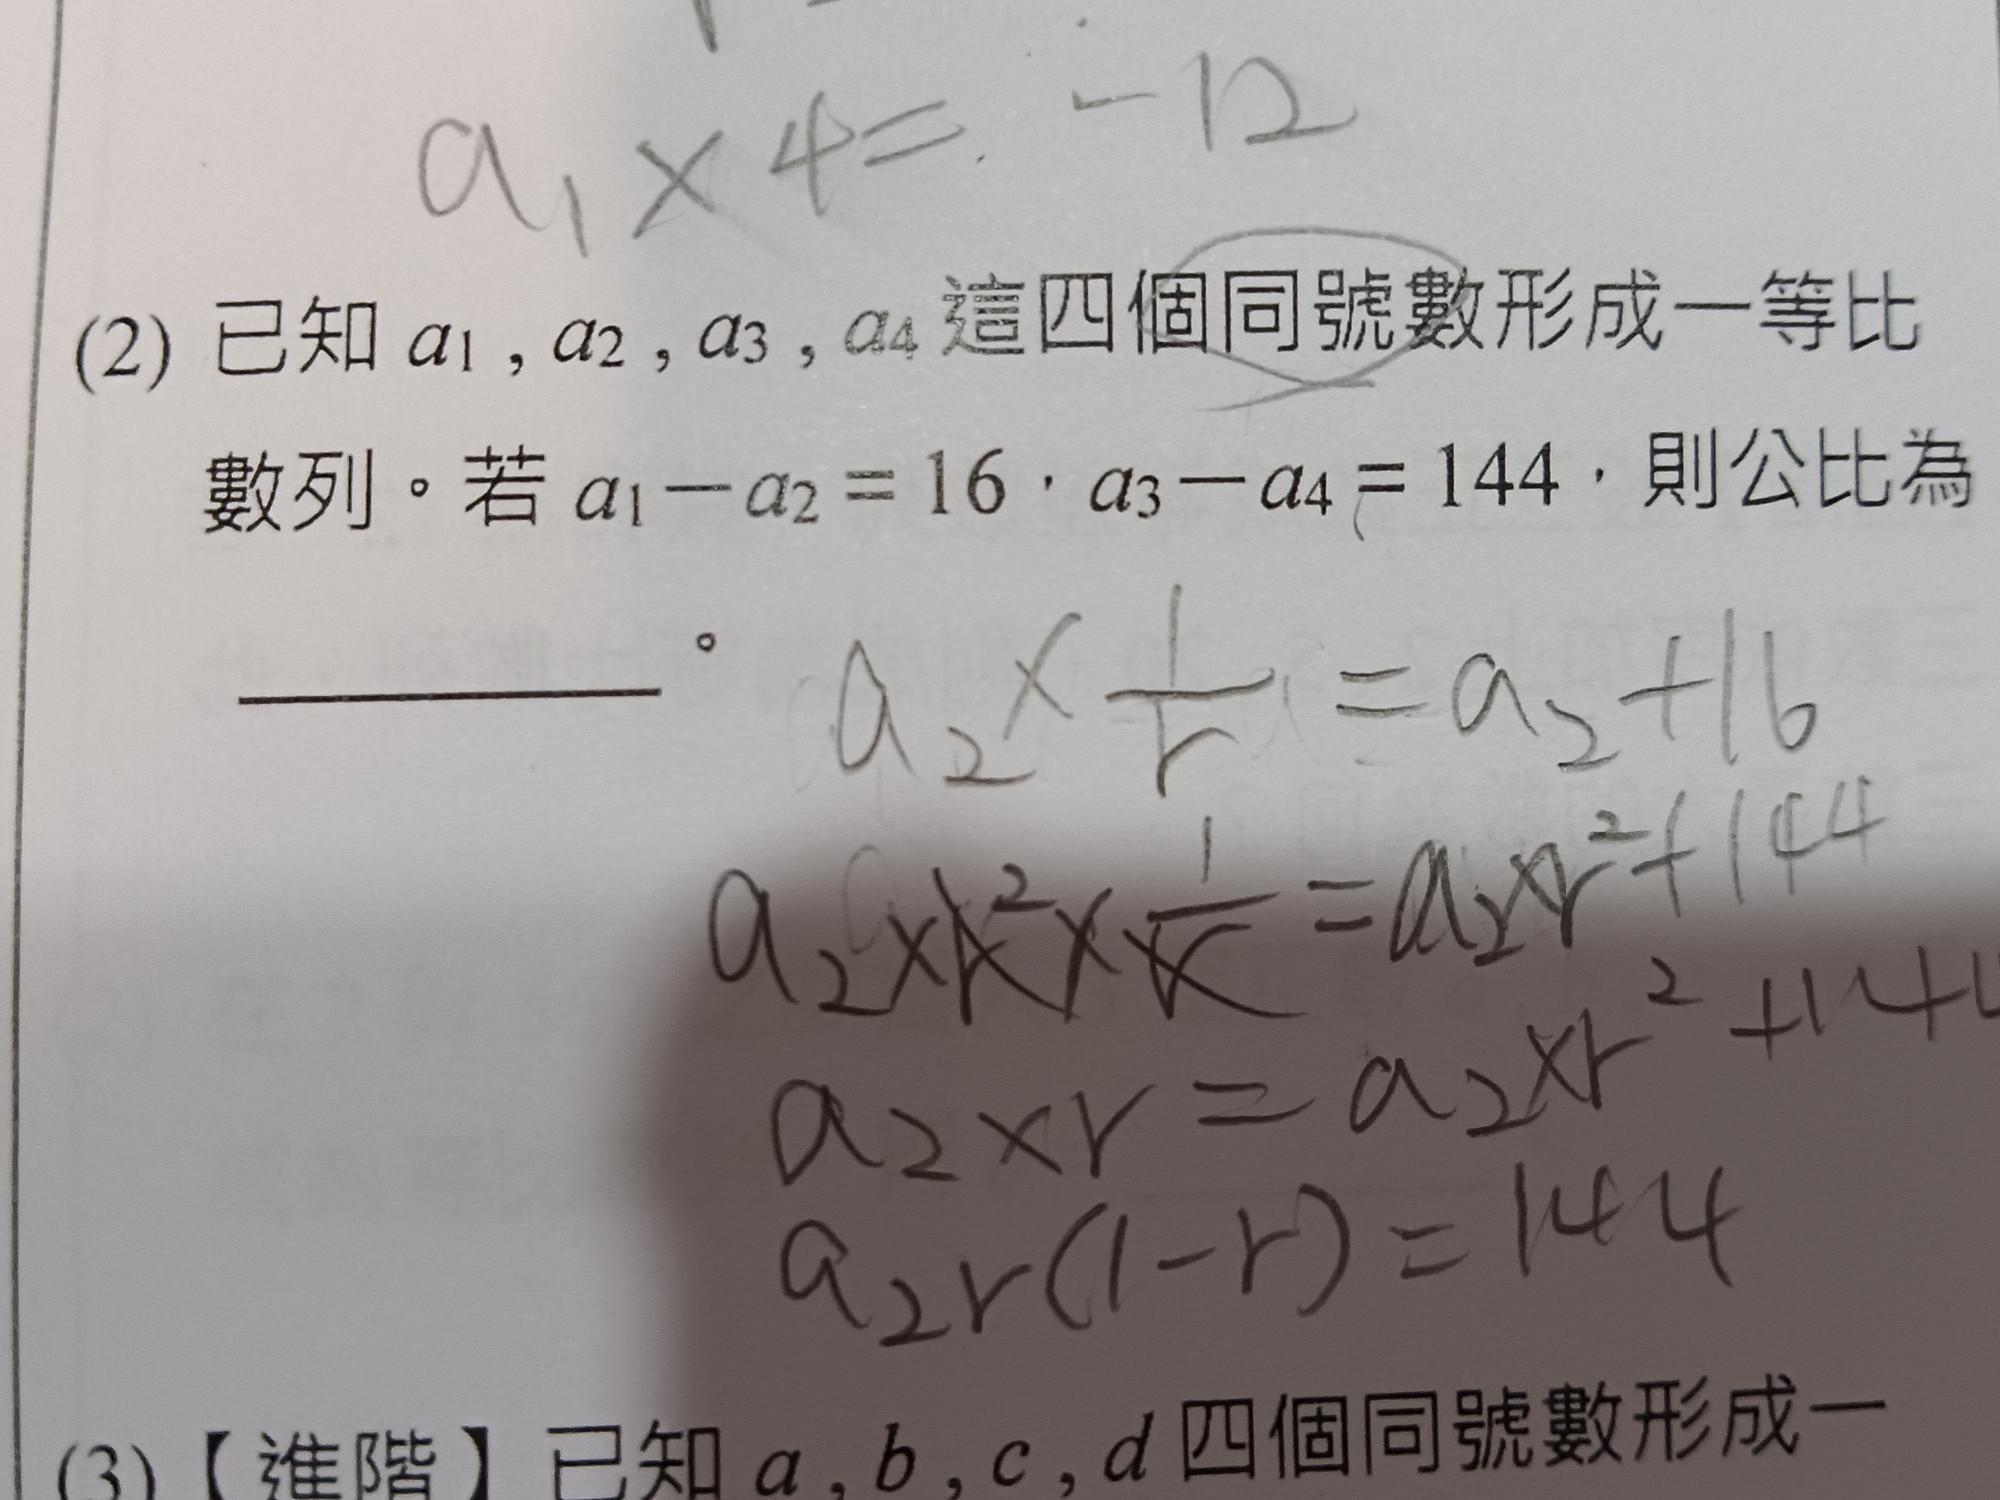 a₁ × 4 = -12
(2) 已知 a₁ , a₂ , a₃ , a₄ 這四個同號數形成一等比
數列。若 a₁－a₂ = 16，a₃－a₄ = 144，則公比為
______。
a₂ × 1/r = a₂ + 16
a₂ × r² × 1/r = a₂ × r² + 144
a₂ × r = a₂ × r² + 144
a₂r(1 - r) = 144
(3)【進階】已知 a , b , c , d 四個同號數形成一